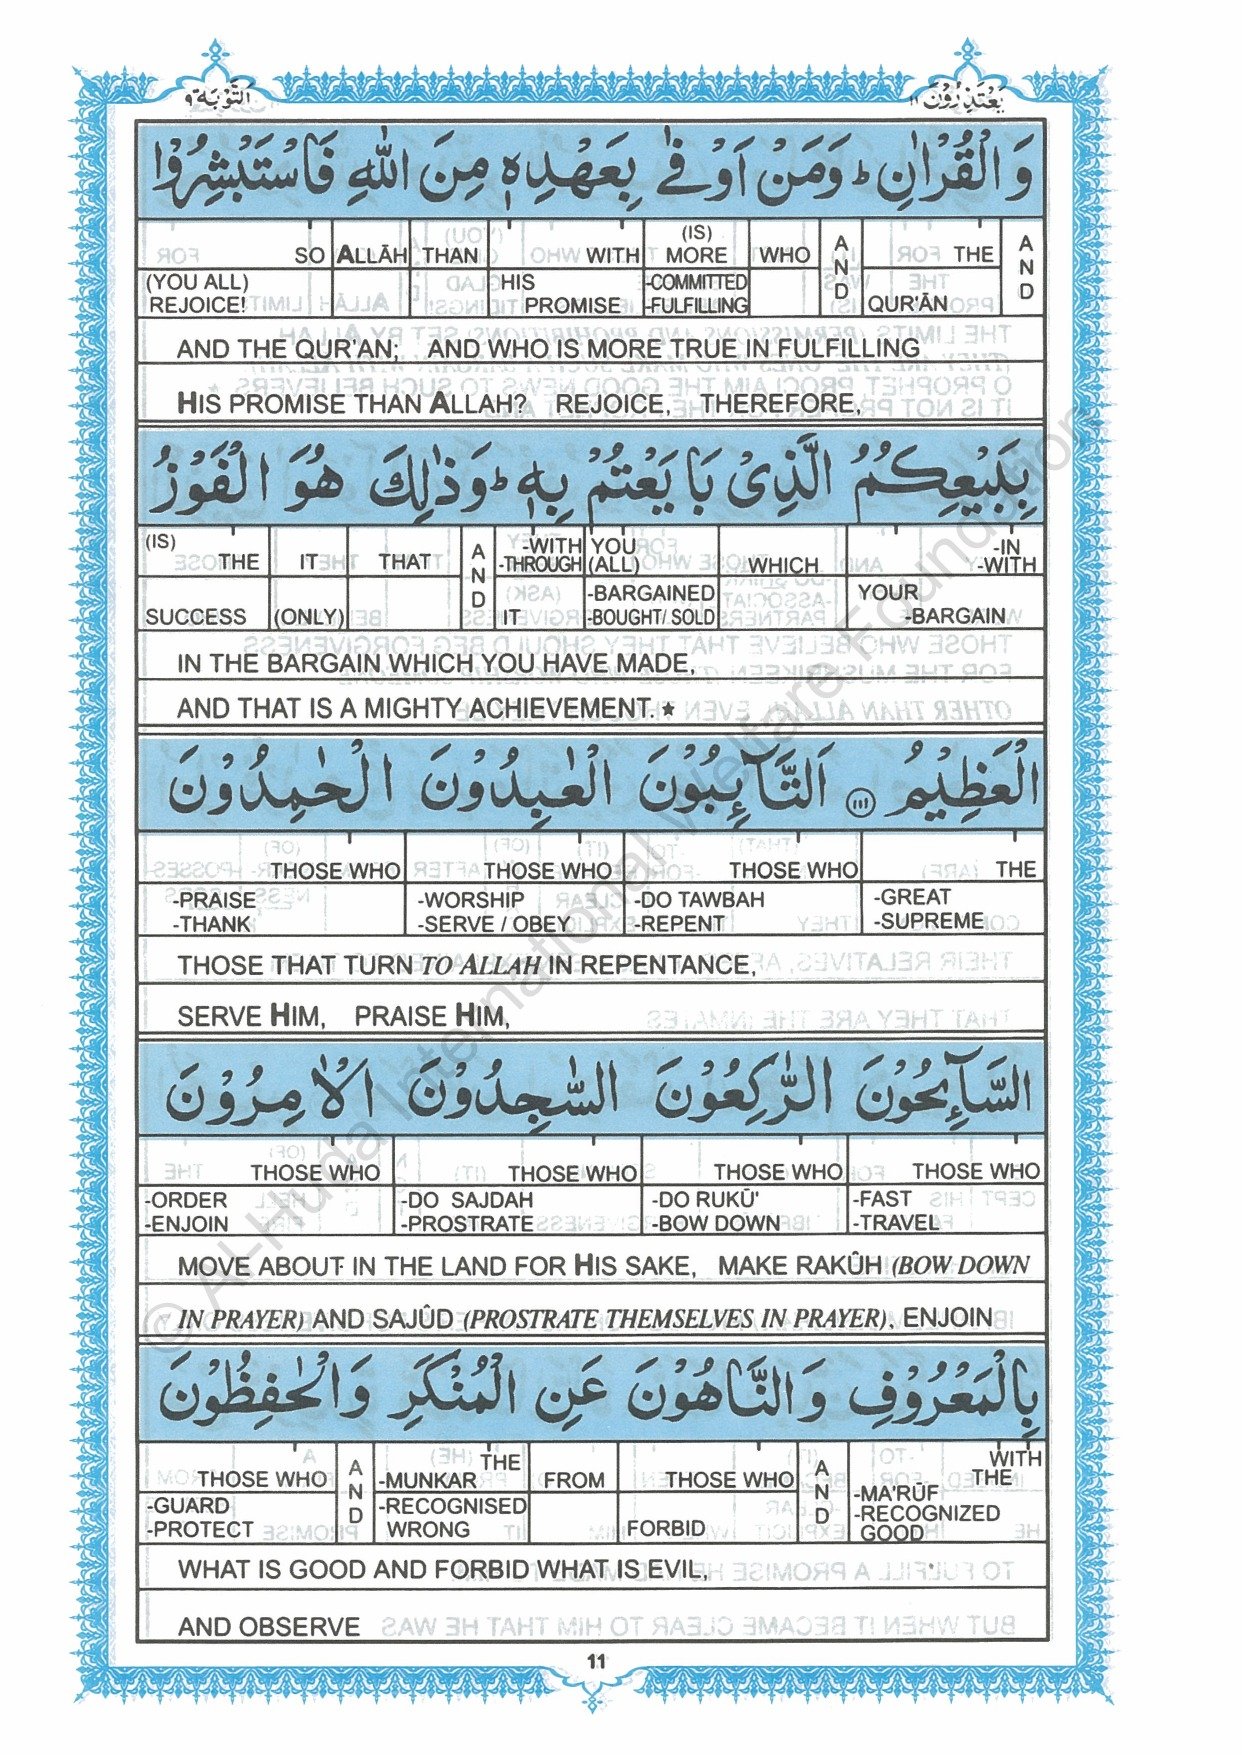 التَّوْبَة ٩ يَعْتَذِرُوْنَ ١١
وَالْقُرْاٰنِ ؕ وَمَنْ اَوْفٰى بِعَهْدِهٖ مِنَ اللّٰهِ فَاسْتَبْشِرُوْا
SO ALLĀH THAN WITH (IS) MORE WHO AND THE AND
(YOU ALL) REJOICE! HIS PROMISE -COMMITTED -FULFILLING QUR'ĀN
AND THE QUR'AN; AND WHO IS MORE TRUE IN FULFILLING
HIS PROMISE THAN ALLAH? REJOICE, THEREFORE,
بِبَيْعِكُمُ الَّذِىْ بَايَعْتُمْ بِهٖ ؕ وَذٰلِكَ هُوَ الْفَوْزُ
(IS) THE IT THAT AND -WITH -THROUGH YOU (ALL) WHICH -IN -WITH
SUCCESS (ONLY) IT -BARGAINED -BOUGHT/ SOLD YOUR -BARGAIN
IN THE BARGAIN WHICH YOU HAVE MADE,
AND THAT IS A MIGHTY ACHIEVEMENT.★
الْعَظِيْمُ ١١١ اَلتَّآئِبُوْنَ الْعٰبِدُوْنَ الْحٰمِدُوْنَ
THOSE WHO THOSE WHO THOSE WHO THE
-PRAISE -THANK -WORSHIP -SERVE / OBEY -DO TAWBAH -REPENT -GREAT -SUPREME
THOSE THAT TURN TO ALLAH IN REPENTANCE,
SERVE HIM, PRAISE HIM,
السَّآئِحُوْنَ الرّٰكِعُوْنَ السّٰجِدُوْنَ الْاٰمِرُوْنَ
THOSE WHO THOSE WHO THOSE WHO THOSE WHO
-ORDER -ENJOIN -DO SAJDAH -PROSTRATE -DO RUKŪ' -BOW DOWN -FAST -TRAVEL
MOVE ABOUT IN THE LAND FOR HIS SAKE, MAKE RAKÛH (BOW DOWN
IN PRAYER) AND SAJÛD (PROSTRATE THEMSELVES IN PRAYER), ENJOIN
بِالْمَعْرُوْفِ وَالنَّاهُوْنَ عَنِ الْمُنْكَرِ وَالْحٰفِظُوْنَ
THOSE WHO AND THE -MUNKAR FROM THOSE WHO AND WITH THE
-GUARD -PROTECT -RECOGNISED WRONG FORBID -MA'RŪF -RECOGNIZED GOOD
WHAT IS GOOD AND FORBID WHAT IS EVIL,
AND OBSERVE
11
© Al-Huda International Welfare Foundation